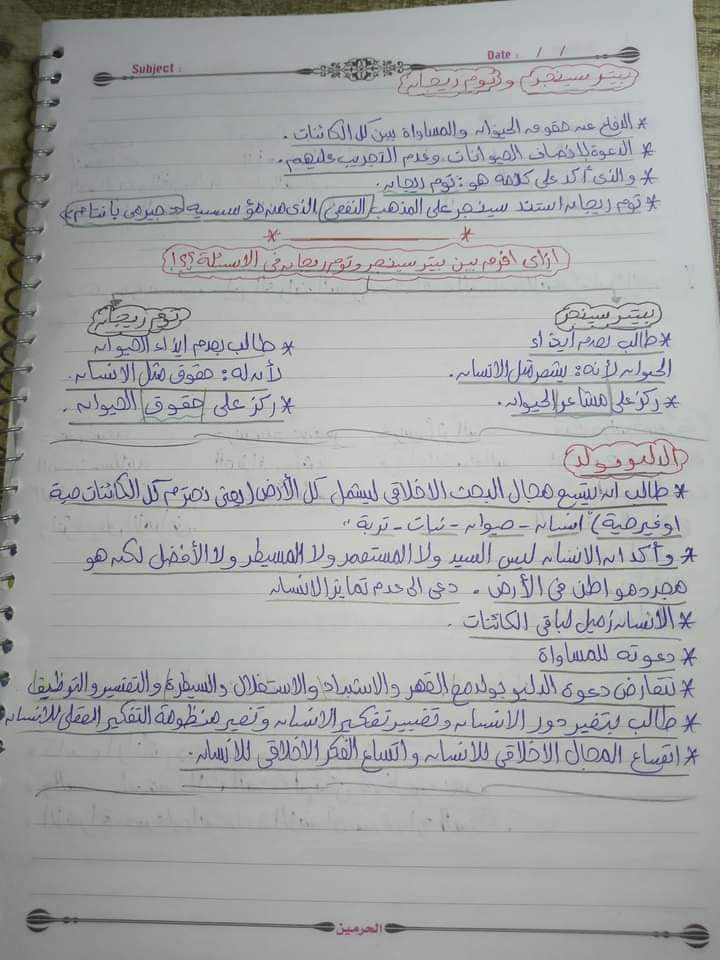 Subject :
Date : / /
بيتر سينجر وتوم ريجان
* الدفاع عن حقوق الحيوان والمساواة بين كل الكائنات.
* الدعوة لإنصاف الحيوانات وعدم التجريب عليهم.
* والذى أكد على كلامه هو: توم ريجان.
* توم ريجان استند سينجر على المذهب النفعى الذى من مؤسسيه د جيرمى بانتام
* *
ازاى افرق بين بيتر سينجر وتوم ريجان فى الاسئلة؟؟!
بيتر سينجر
* طالب بعدم ايذاء
الحيوان لأنه: يشعر مثل الانسان.
* ركز على مشاعر الحيوان.
توم ريجان
* طالب بعدم ايذاء الحيوان
لأن له: حقوق مثل الانسان.
* ركز على حقوق الحيوان.
الدليوبولد
* طالب ان يتسع مجال البحث الاخلاقى ليشمل كل الأرض (يعنى نحترم كل الكائنات حية
او غير حية) انسان - حيوان - نبات - تربة "
* وأكد ان الانسان ليس السيد ولا المستعمر ولا المسيطر ولا الأفضل لكن هو
مجرد مواطن فى الأرض. دعى الى عدم تمايز الانسان
* الأنسان زميل لباقى الكائنات.
* دعوته للمساواة
* تتعارض دعوة الدليوبولد مع القهر والاستبداد والاستغلال والسيطرة والتفسير والتوظيف
* طالب بتغير دور الانسان وتغيير تفكير الانسان وتغير منظومة التفكير العقلى للانسان
* اتساع المجال الاخلاقى للانسان واتساع الفكر الاخلاقى للانسان.
الحرمين